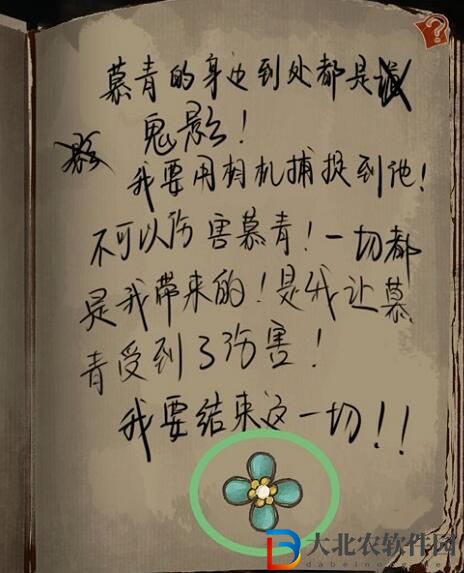 慕青的身边到处都是
鬼影！
我要用相机捕捉到他！
不可以伤害慕青！一切都
是我带来的！是我让慕
青受到了伤害！
我要结束这一切！！
?
大北农软件园
dabeinong.com